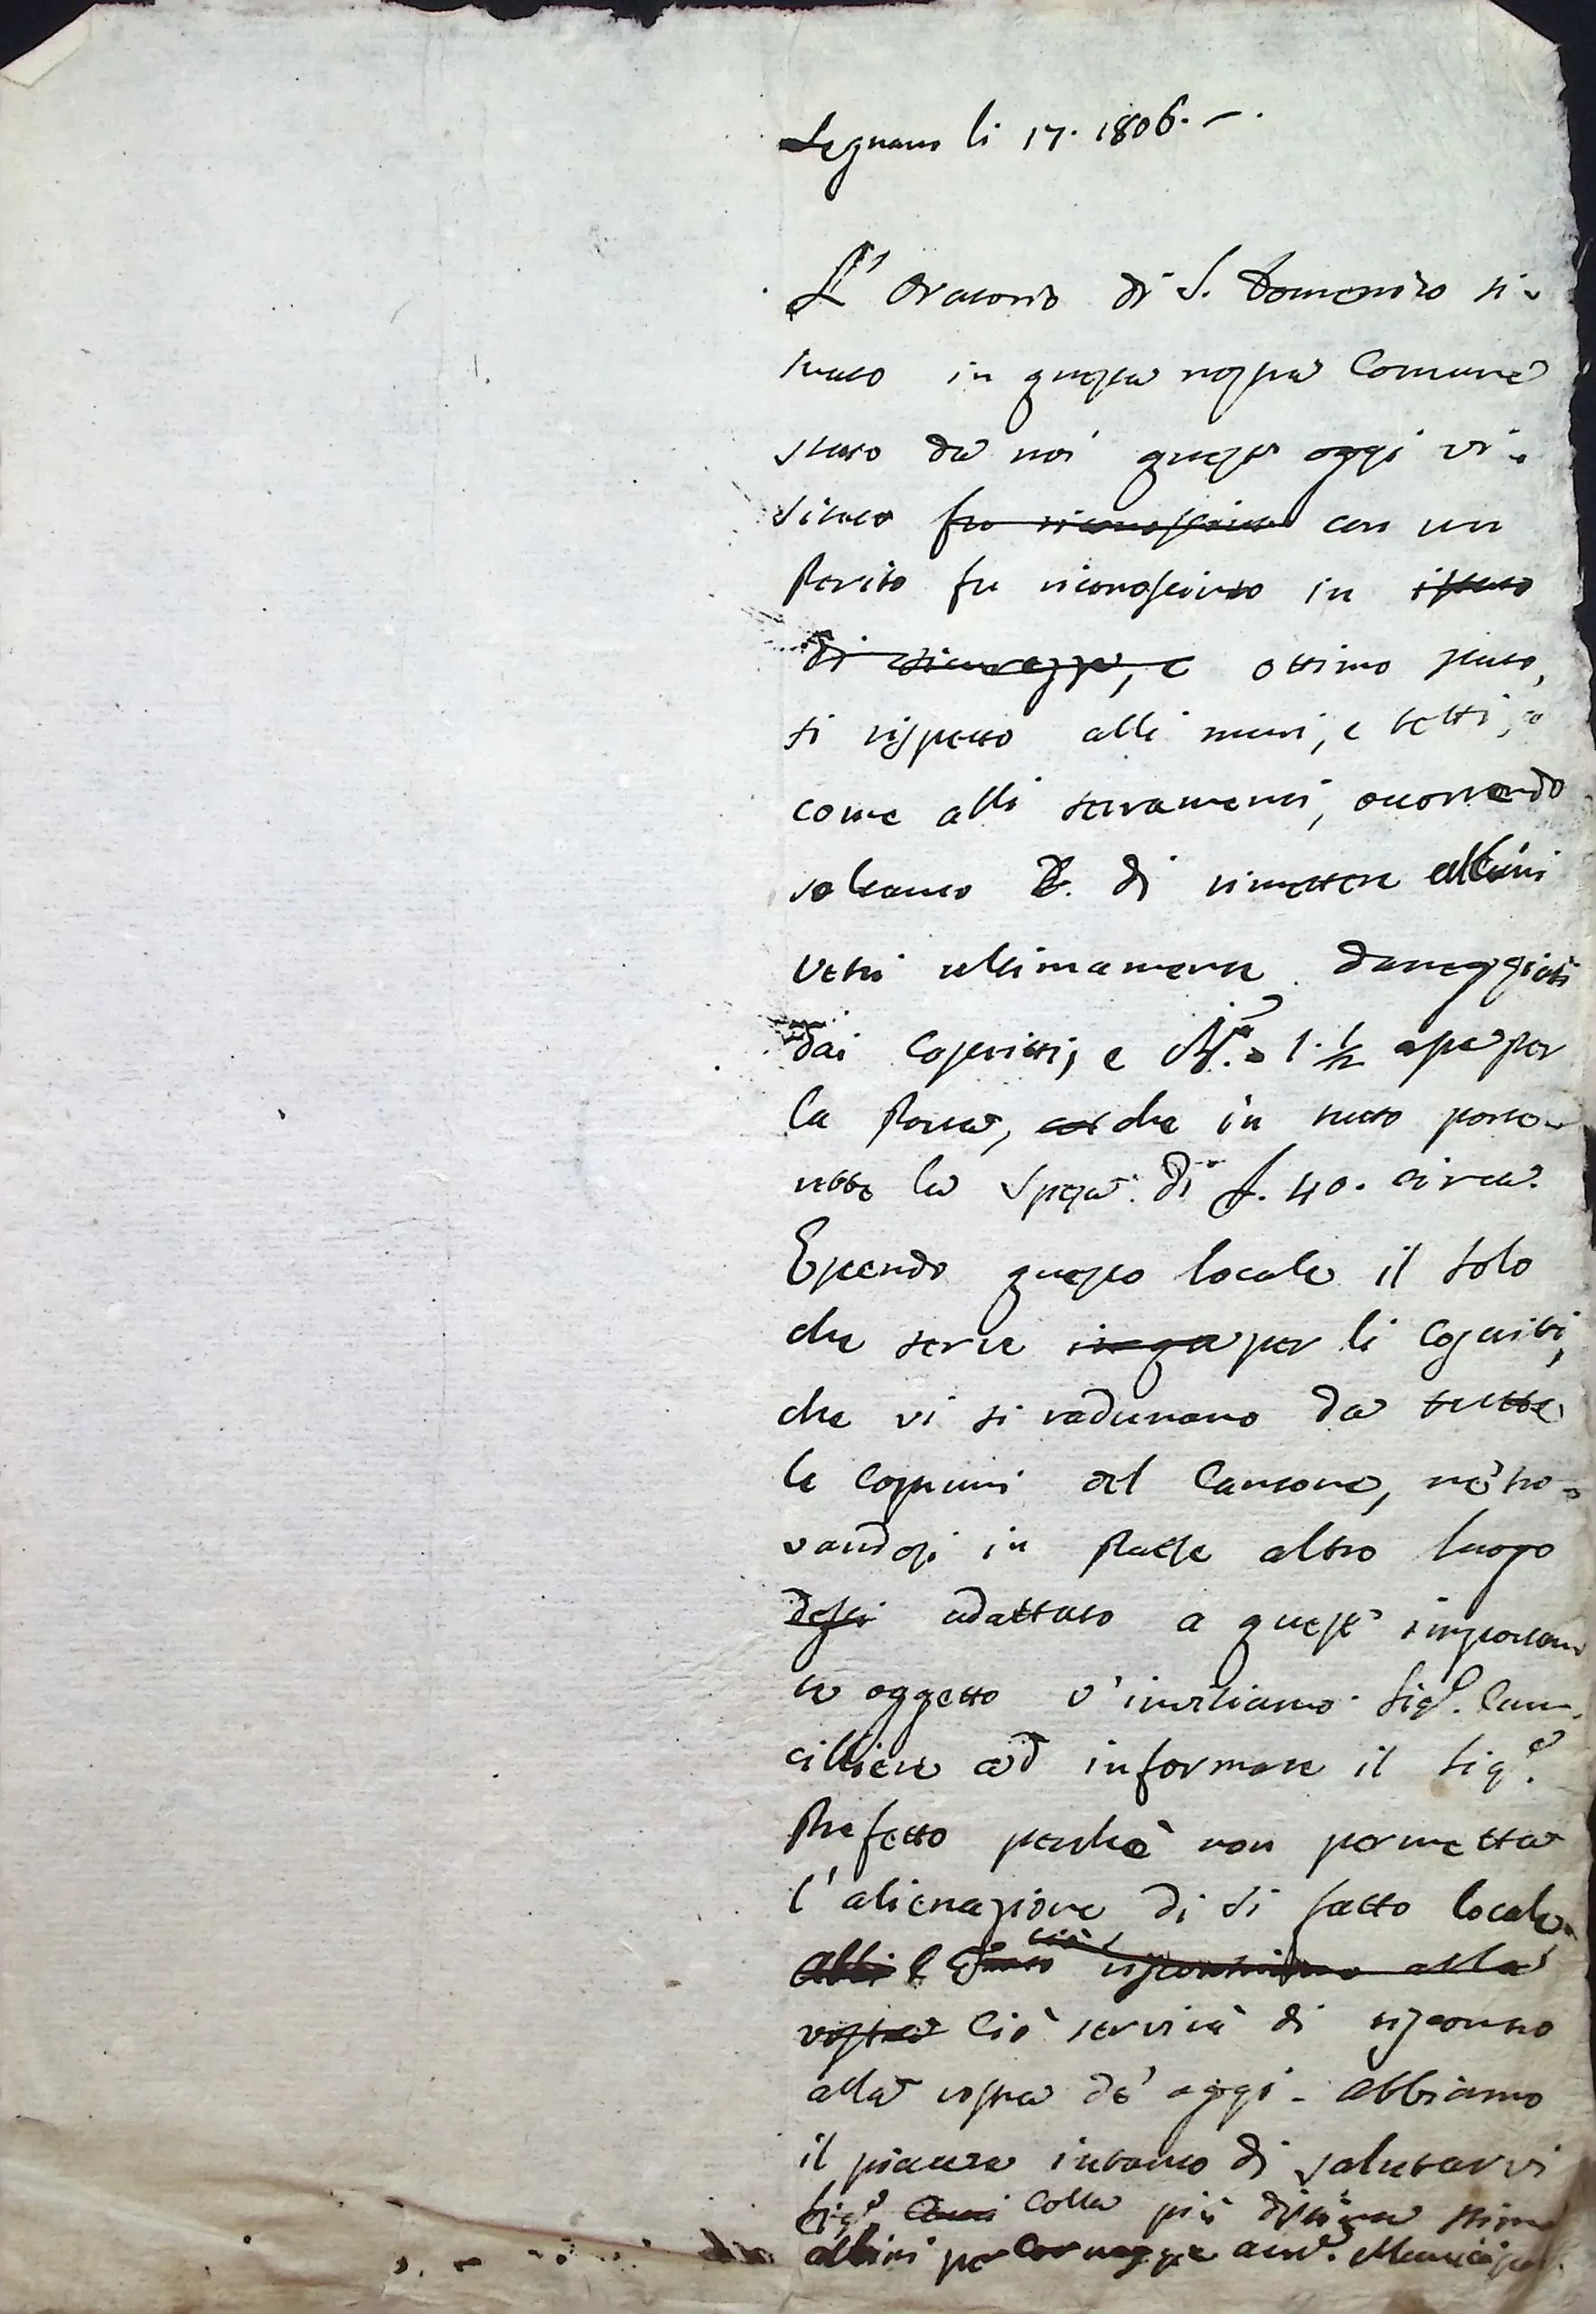 Legnano li 17. 1806. —.
L'Oratorio di S. Domenico si-
tuato in questa nostra Comune
stato da noi quest' oggi vi-
sitato fu riconosciuto con un
Perito fu riconosciuto in istato
di sicurezza, e ottimo stato,
si rispetto alli muri, e tetti,
come alli serramenti, occorrendo
soltanto di rimettere alcuni
vetri ultimamente daneggiati
dai Coscritti, e N.° 1 ½ aspe per
la Porta, che in tutto porte-
rebbe la Spesa di L. 40. circa.
Essendo questo locale il solo
che serve per li Coscritti,
che vi si radunano da tutte
le Comuni del Cantone, nè tro-
vandosi in Paese altro luogo
adattato a quest' importan
te oggetto v'invitiamo Sig.e Can-
cilliere ad informare il Sig.e
Prefetto perchè non permetta
l'alienazione di si fatto locale.
alla
vostra Ciò servirà di riscontro
alla vostra de' oggi - abbiamo
il piacere intanto di salutarvi
Sig.e colla più distinta stima
Albini per Cornaggia Municipale.